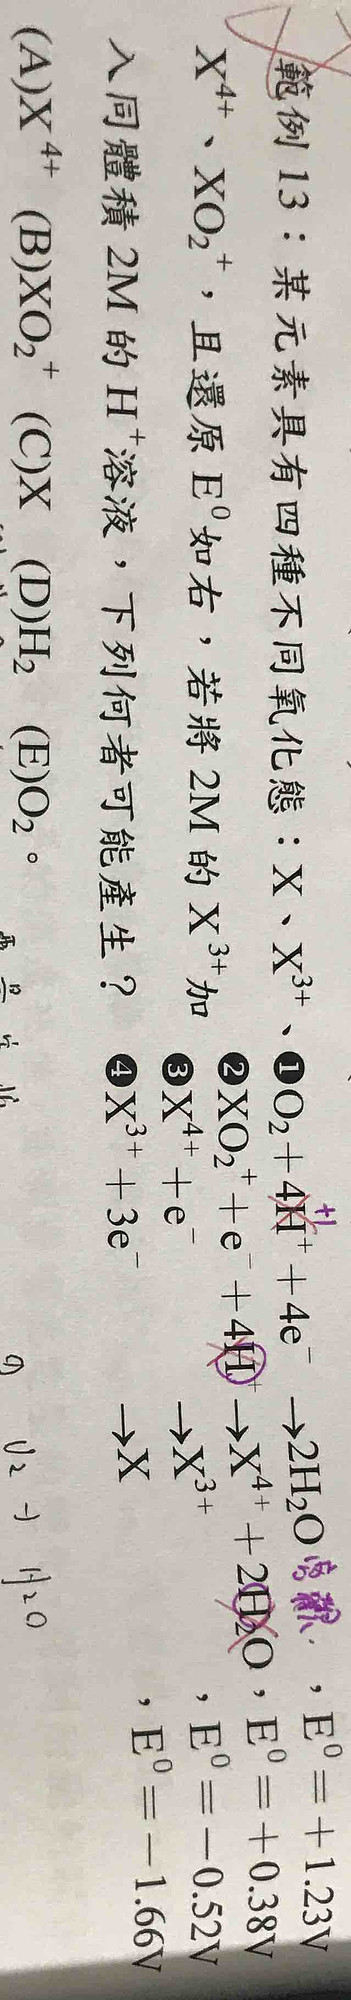 範例 13：某元素具有四種不同氧化態：X、X³⁺、
X⁴⁺、XO₂⁺，且還原 E⁰如右，若將 2M 的 X³⁺加
入同體積 2M 的 H⁺溶液，下列何者可能產生？
(A)X⁴⁺ (B)XO₂⁺ (C)X (D)H₂ (E)O₂。
+1
❶O₂＋4H⁺＋4e⁻ →2H₂O ，E⁰＝＋1.23V
❷XO₂⁺＋e⁻＋4H⁺→X⁴⁺＋2H₂O，E⁰＝＋0.38V
❸X⁴⁺＋e⁻ →X³⁺ ，E⁰＝－0.52V
❹X³⁺＋3e⁻ →X ，E⁰＝－1.66V